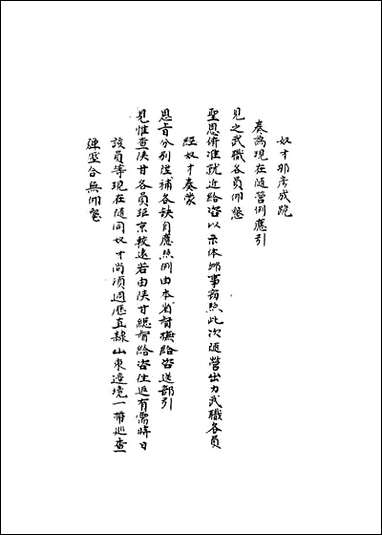 奴才那彥成跪
奏為現在隨營例應引
見之武職各員仰懇
聖恩俯准就近給咨以示体卹事竊照此次隨營出力武職各員
經奴才奏蒙
恩旨分別陞補各缺自應照例由本省督撫給咨送部引
見惟查陝甘各員距京較遠若由陝甘總督給咨往返有需時日
該員等現在隨同奴才尚須週歷直隸山東邊境一帶巡查
彈壓合無仰懇